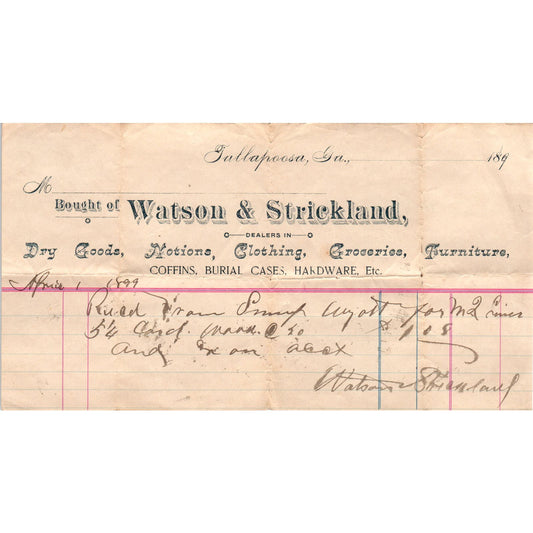 Tallapoosa, Ga., 189
M
Bought of Watson & Strickland,
DEALERS IN
Dry Goods, Notions, Clothing, Groceries, Furniture,
COFFINS, BURIAL CASES, HARDWARE, Etc.
April 1 1899
Rec'd from for
54 Cord Wood @ 20 $ 1.08
and on acct
Watson & Strickland